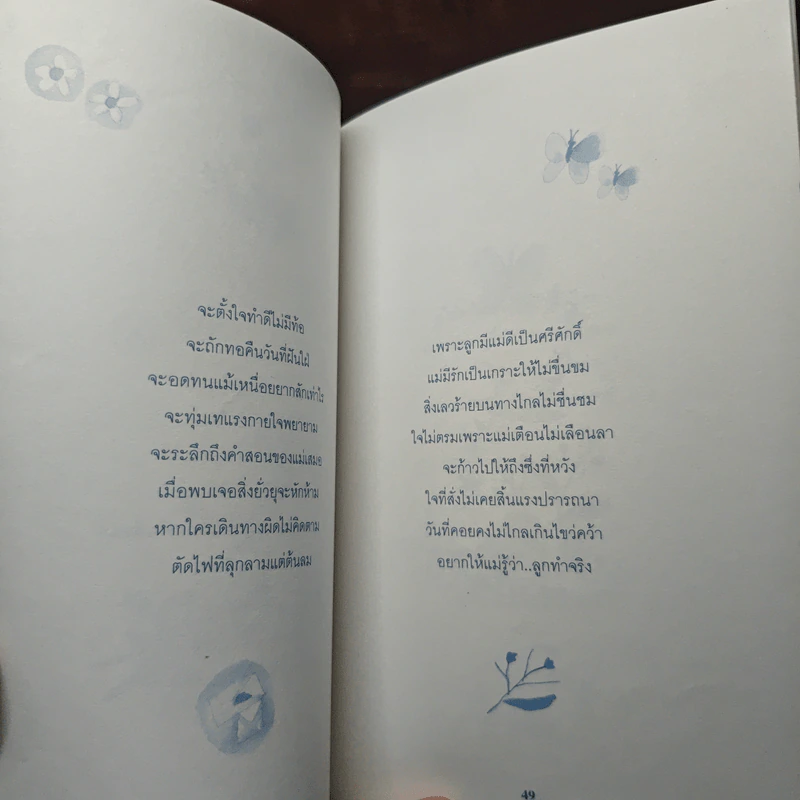 จะตั้งใจทำดีไม่มีท้อ
จะถักทอคืนวันที่ฝันใฝ่
จะอดทนแม้เหนื่อยยากสักเท่าไร
จะทุ่มเทแรงกายใจพยายาม
จะระลึกถึงคำสอนของแม่เสมอ
เมื่อพบเจอสิ่งยั่วยุจะหักห้าม
หากใครเดินทางผิดไม่คิดตาม
ตัดไฟที่ลุกลามแต่ต้นลม
เพราะลูกมีแม่ดีเป็นศรีศักดิ์
แม่มีรักเป็นเกราะให้ไม่ขื่นขม
สิ่งเลวร้ายบนทางไกลไม่ชื่นชม
ใจไม่ตรมเพราะแม่เตือนไม่เลือนลา
จะก้าวไปให้ถึงซึ่งที่หวัง
ใจที่สั่งไม่เคยสิ้นแรงปรารถนา
วันที่คอยคงไม่ไกลเกินไขว่คว้า
อยากให้แม่รู้ว่า..ลูกทำจริง
49